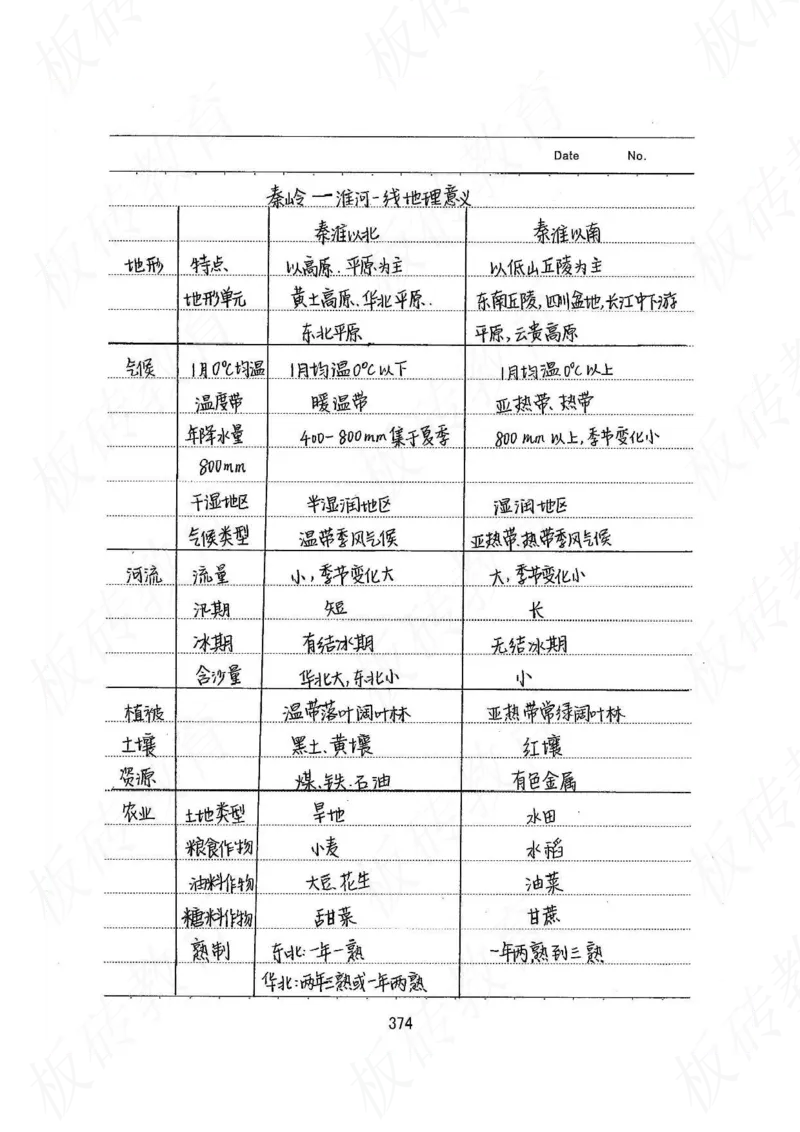 Date No.
秦岭——淮河一线地理意义
秦淮以北 秦淮以南
地形 特点 以高原、平原为主 以低山丘陵为主
地形单元 黄土高原、华北平原、 东南丘陵,四川盆地,长江中下游
东北平原 平原,云贵高原
气候 1月0℃均温 1月均温0℃以下 1月均温0℃以上
温度带 暖温带 亚热带、热带
年降水量 400-800mm集于夏季 800mm以上,季节变化小
800mm
干湿地区 半湿润地区 湿润地区
气候类型 温带季风气候 亚热带、热带季风气候
河流 流量 小,季节变化大 大,季节变化小
汛期 短 长
冰期 有结冰期 无结冰期
含沙量 华北大,东北小 小
植被 温带落叶阔叶林 亚热带常绿阔叶林
土壤 黑土、黄壤 红壤
资源 煤、铁、石油 有色金属
农业 土地类型 旱地 水田
粮食作物 小麦 水稻
油料作物 大豆、花生 油菜
糖料作物 甜菜 甘蔗
熟制 东北:一年一熟 一年两熟到三熟
华北:两年三熟或一年两熟
374
板砖教育